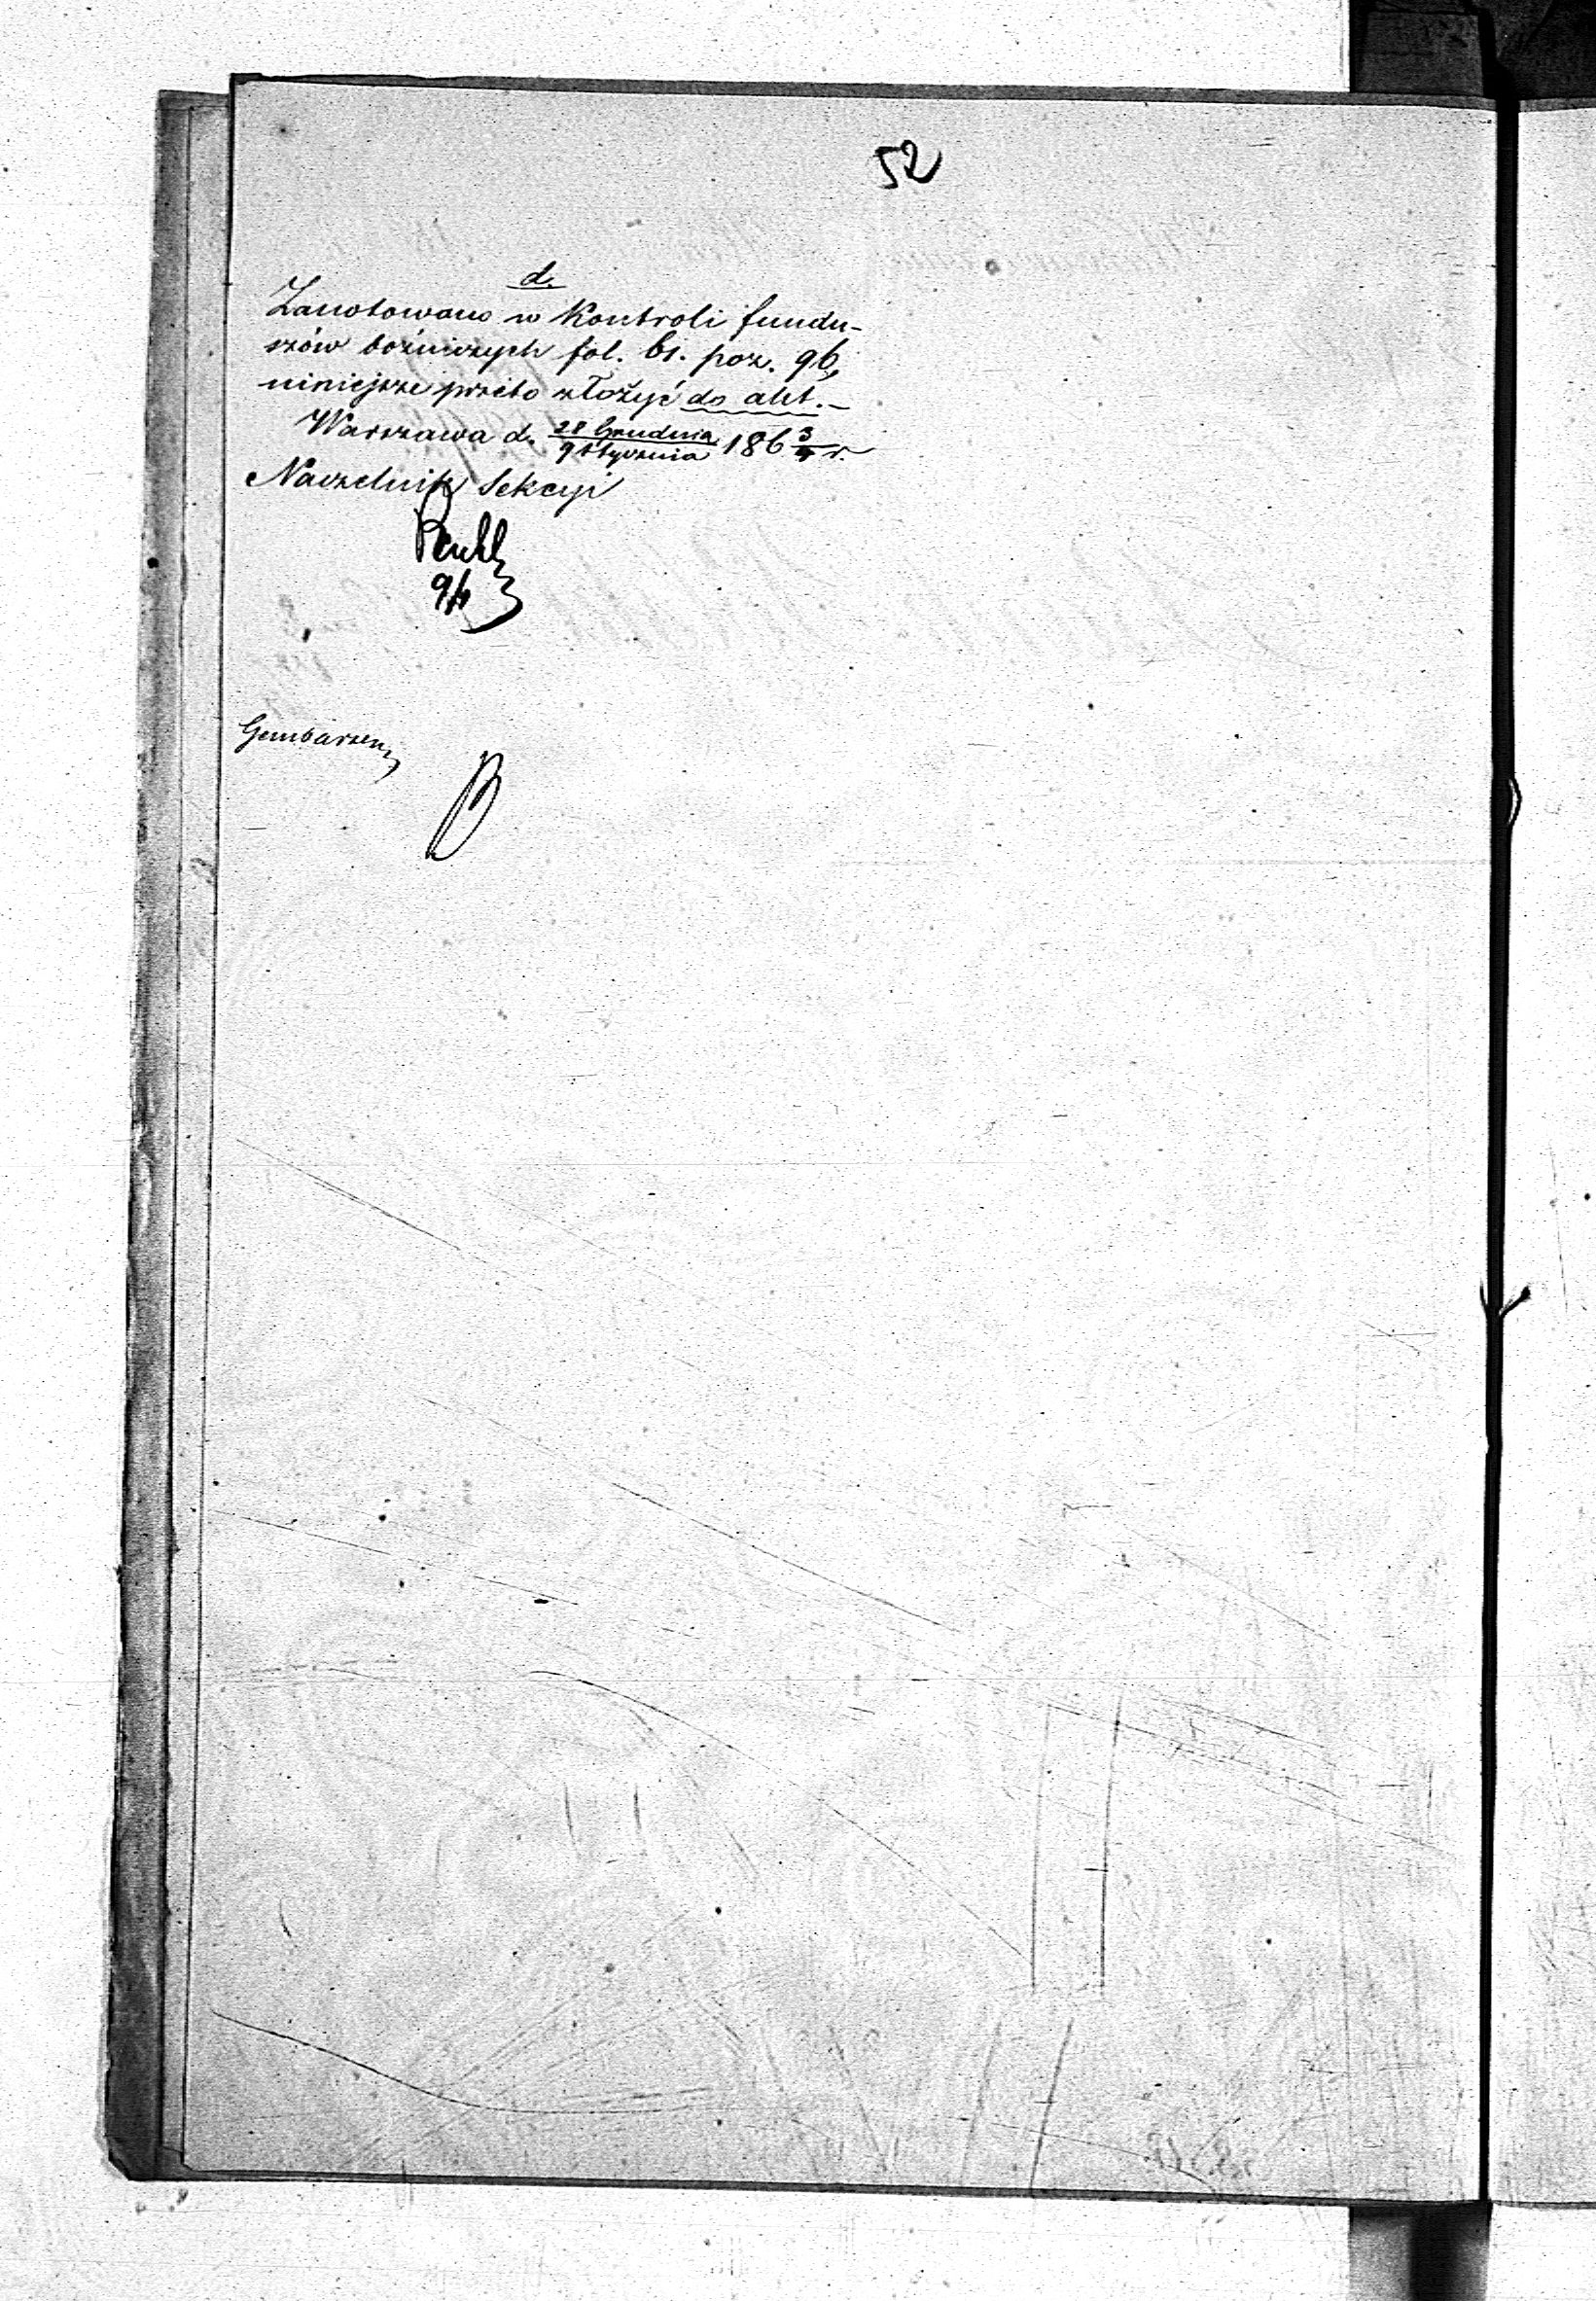 52
d.
Zanotowano w Kontroli fundu-
szów bożniczych fol. 61. poz. 96,
niniejsze przeto złożyć do akt.-
Warszawa d. 28 Grudnia/9 Stycznia 186 3/4 r.
Naczelnik Sekcyi
9/1